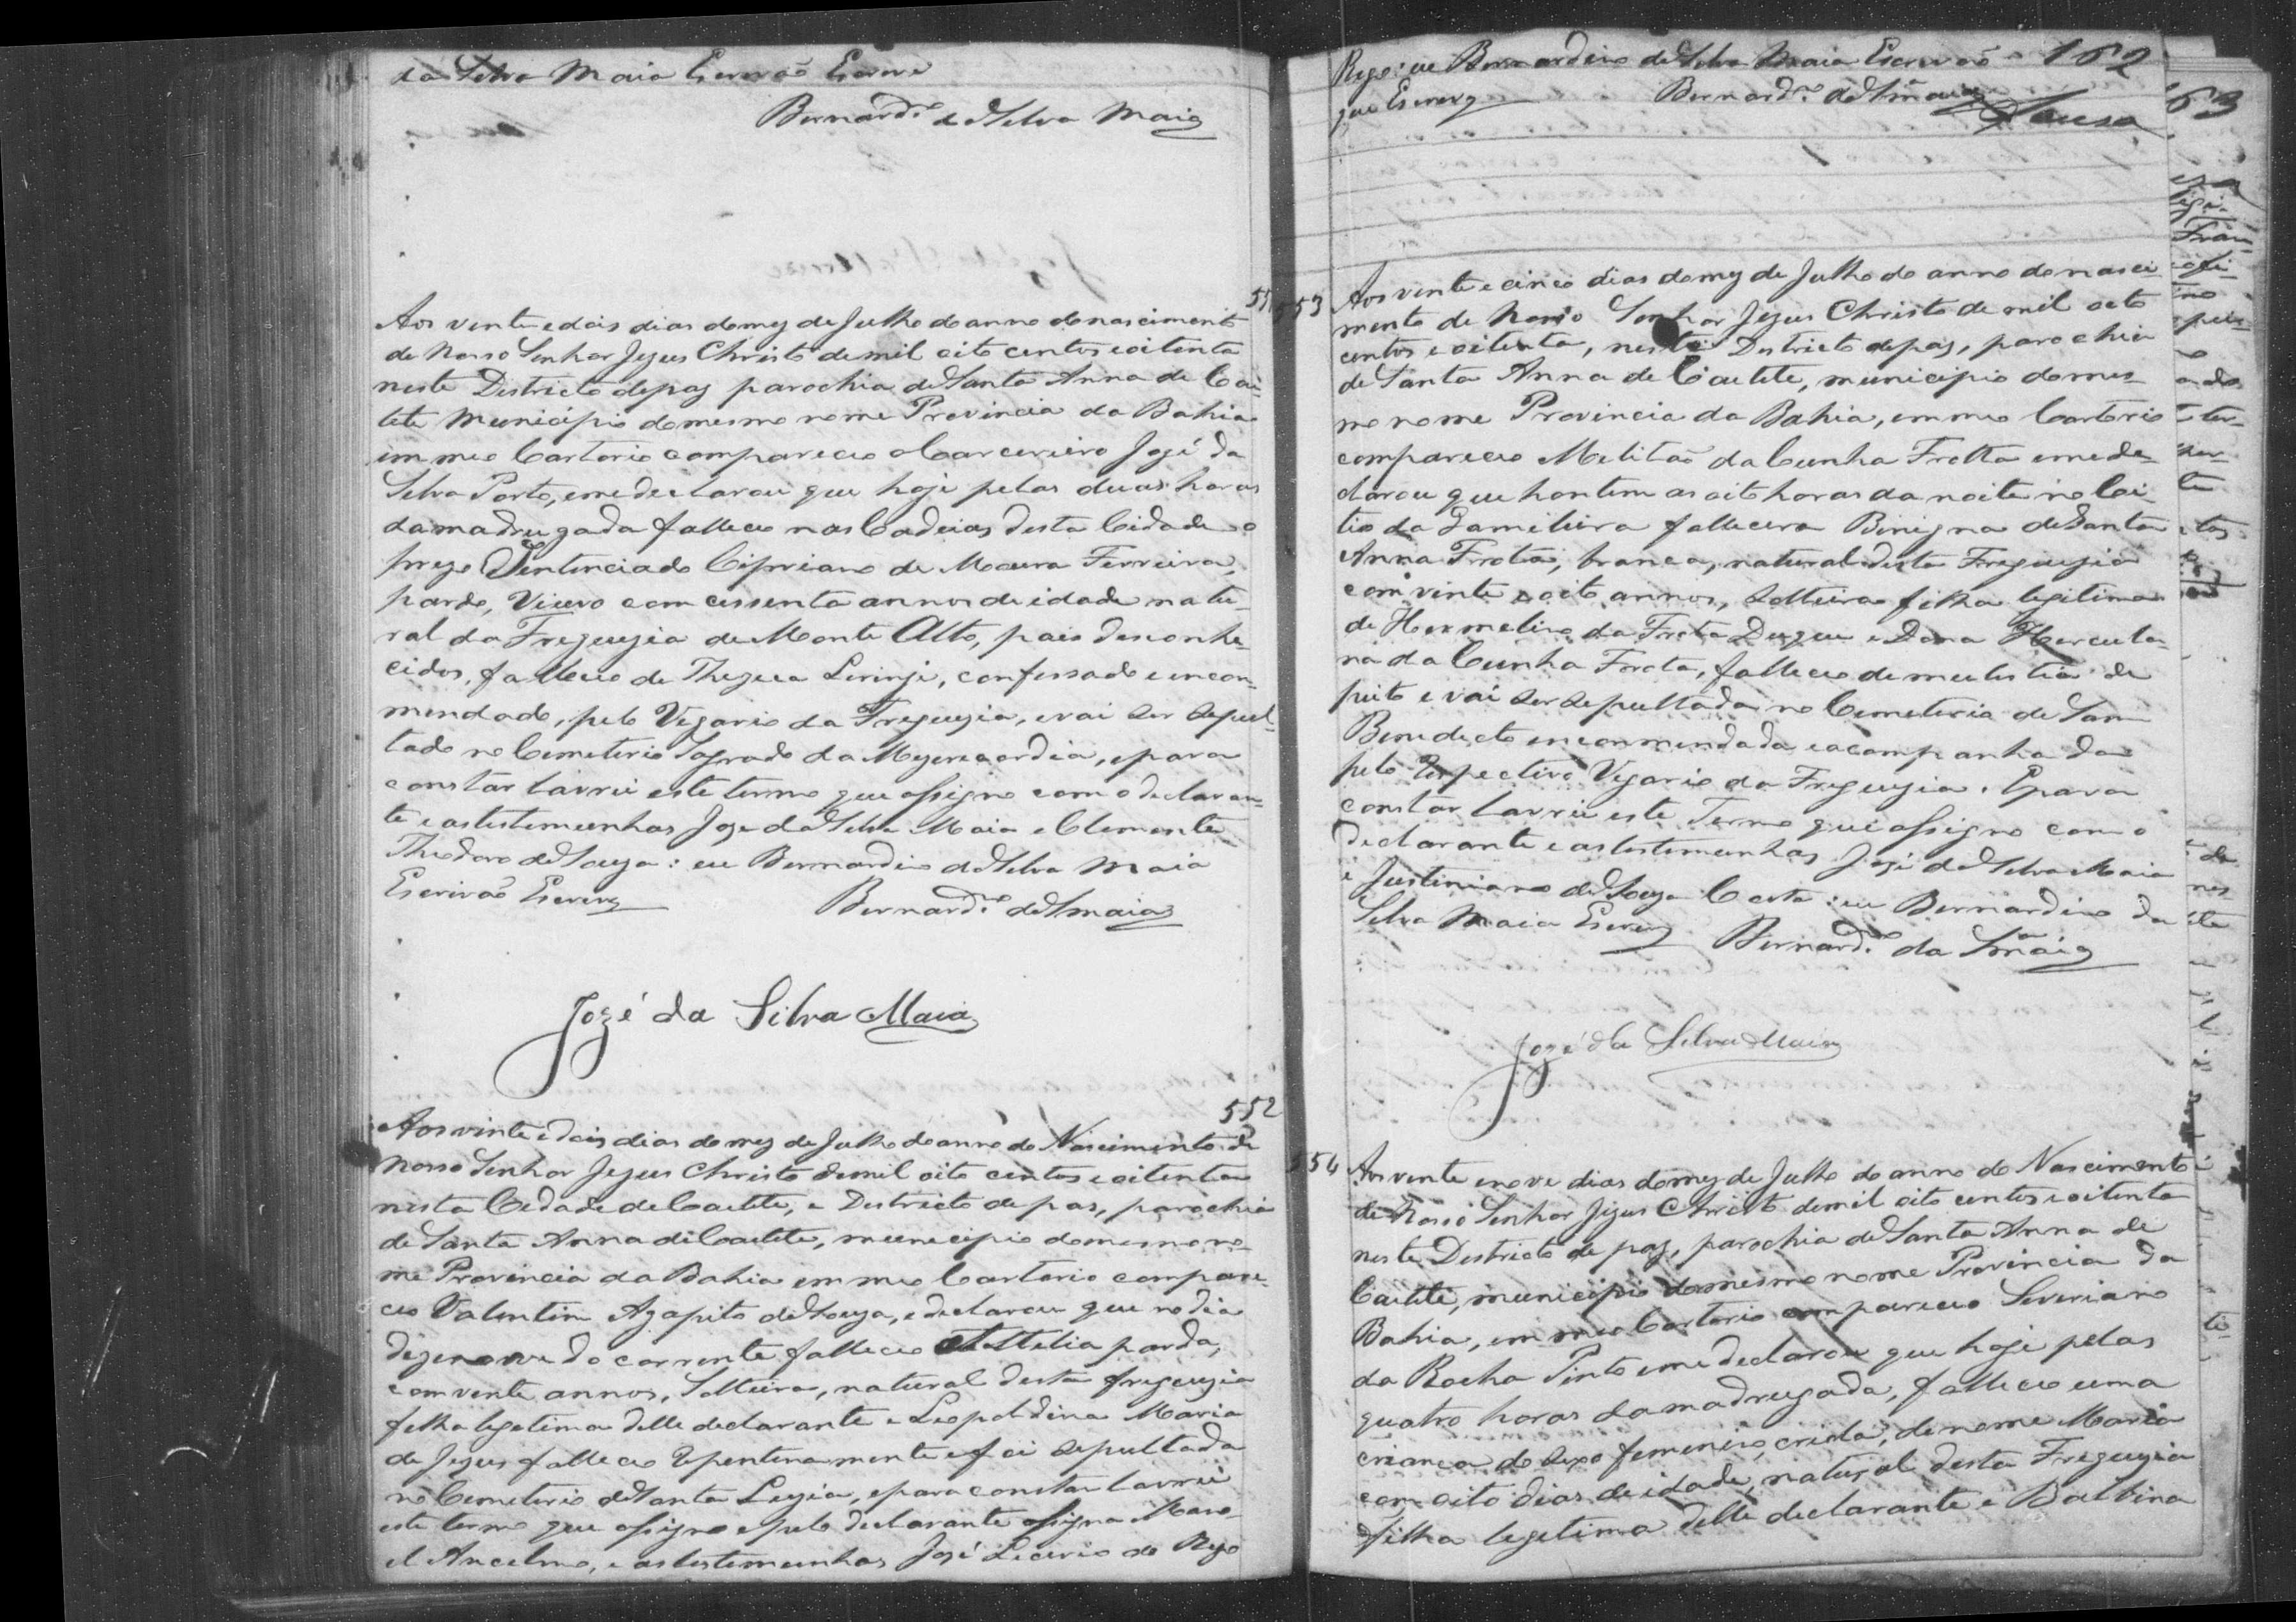 da Silva Maia Escrivão Escrevi
Bernard.º da Silva Maia
551
Aos vinte e dois dias do mez de Julho do anno do nascimento
de Nosso Senhor Jezus Christo de mil oito centos e oitenta
neste Districto de paz parochia de Santa Anna de Cai-
tete Municipio do mesmo nome Provincia da Bahia
em meo Cartorio compareceo o Carcereiro José da
Silva Porto, e me declarou que hoje pelas duas horas
da madrugada falleceo nas Cadeias desta Cidade o
prezo Sentenciado Cipriano de Moura Ferreira,
pardo, Viuvo com cessenta annos de idade natu-
ral da Freguezia de Monte Alto, pais desconhe-
cidos, falleceo de Thezica Lerinje, confessado e encon-
mendado, pelo Vigario da Freguezia, e vai ser sepul-
tado no Cemeterio Sagrado da Mezericordia, e para
constar lavrei este termo que assigno com o declaran-
te e as testemunhas José da Silva Maia e Clemente
Theodoro de Souza: eu Bernardino da Silva Maia
Escrivão Escrevy
Bernard.º da S Maia
José da Silva Maia
552
Aos vinte e dois dias do mez de Julho do anno do Nascimento de
Nosso Senhor Jezus Christo de mil oito centos e oitenta
nesta Cidade de Caetite, e Districto de pas, parochia
de Santa Anna de Caetite, municipio do mesmo no-
me Provincia da Bahia em meo Cartorio compare-
ceo Valentim Agapito de Souza, e declarou que no dia
dezenove do corrente falleceo Attilia parda,
com vente annos, Solteira, natural desta freguezia
filha legetima delle declarante e Leopoldina Maria
de Jezus falleceo Repentinamente e foi sepultada
no Cemeterio de Santa Luzia, e para constar lavrei
este termo que assigno e pelo declarante assigna Mano-
el Ancelmo, e as testemunhas José Licerio do Rego
Rego: eu Bernardino da Silva Maia Escrivão 162
que Escrevy Bernard.º da S Maia
Sousa
553
Aos vente e cinco dias do mez de Julho do anno do nasci-
mento de Nosso Senhor Jezus Christo de mil oito
centos e oitenta, neste Districto de paz, parochia
de Santa Anna de Caetite, municipio do mes-
mo nome Provincia da Bahia, em meo Cartorio
compareceo Melitão da Cunha Frotta e me de-
clarou que hontem as oito horas da noite no Cei-
tio da Gamileira fallecera Binigna de Santa
Anna Frota, branca, natural desta Freguezia
com vinte e oito annos, Solteira filha legitima
de Hermelino da Frota Duque e Dona Hercula-
na da Cunha Frota, falleceo de mulestia de
peito e vai ser sepultada no Cemeterio de Sam
Benedicto encommendada e acompanhada
pelo Respectivo Vigario da Freguezia. E para
constar lavrei este Termo que assigno com o
declarante e as testemunhas José da Silva Maia
e Justiniano de Souza Costa: eu Bernardino da
Silva Maia Escrevy Bernard.º da S Maia
José da Silva Maia
554
Aos vente e nove dias do mez de Julho do anno do Nascimento
de Nosso Senhor Jezus Christo de mil oito centos e oitenta
neste Districto de paz, parochia de Santa Anna de
Caetité, municipio do mesmo nome Provincia da
Bahia, em meo Cartorio compareceo Severiano
da Rocha Pinto e me declarou que hoje pelas
quatro horas da madrugada, falleceo uma
crianca do sexo femenino, criola, de nome Maria
com oito dias de idade, natural desta Freguezia
filha legetima delle declarante e Balbina